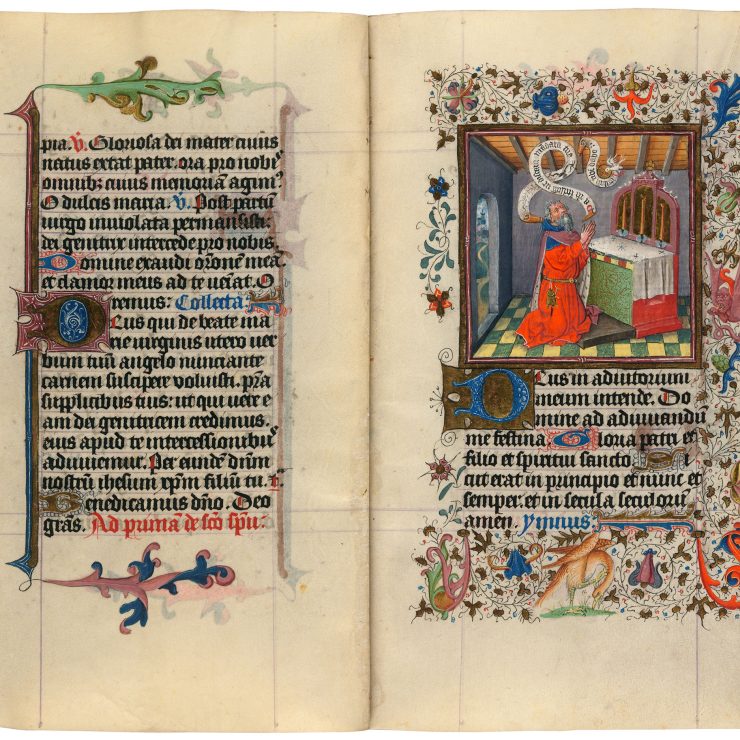 pia. V. Gloriosa dei mater cuius
natus extat pater. ora pro nobis
omnib; cuius memoriam agim᷒
O dulcis maria. V. Post partū
uirgo inuiolata permansisti:
dei genitrix intercede pro nobis.
Domine exaudi orōnem meā
et clamor meus ad te ueniat. O
remus: Collecta:
Deus qui de beate ma
rie uirginis utero uer
bum tuū angelo nunciante
carnem suscipere voluisti. pr̄a
supplicibus tuis: ut qui uere
eam dei genitricem credimus.
eius apud te intercessionibus
adiuuemur. Per eundē dn̄m
nostrū ihesum xp̄m filiū tū.
Benedicamus dn̄o. Deo
grās. Ad primā de sc̄o sp̄u:
Deus in adiutorium
meum intende. Do
mine ad adiuuandū
me festina Gloria patri et
filio et spiritui sancto. Si
cut erat in principio et nunc et
semper: et in secula seculorū
amen. Ymnus: